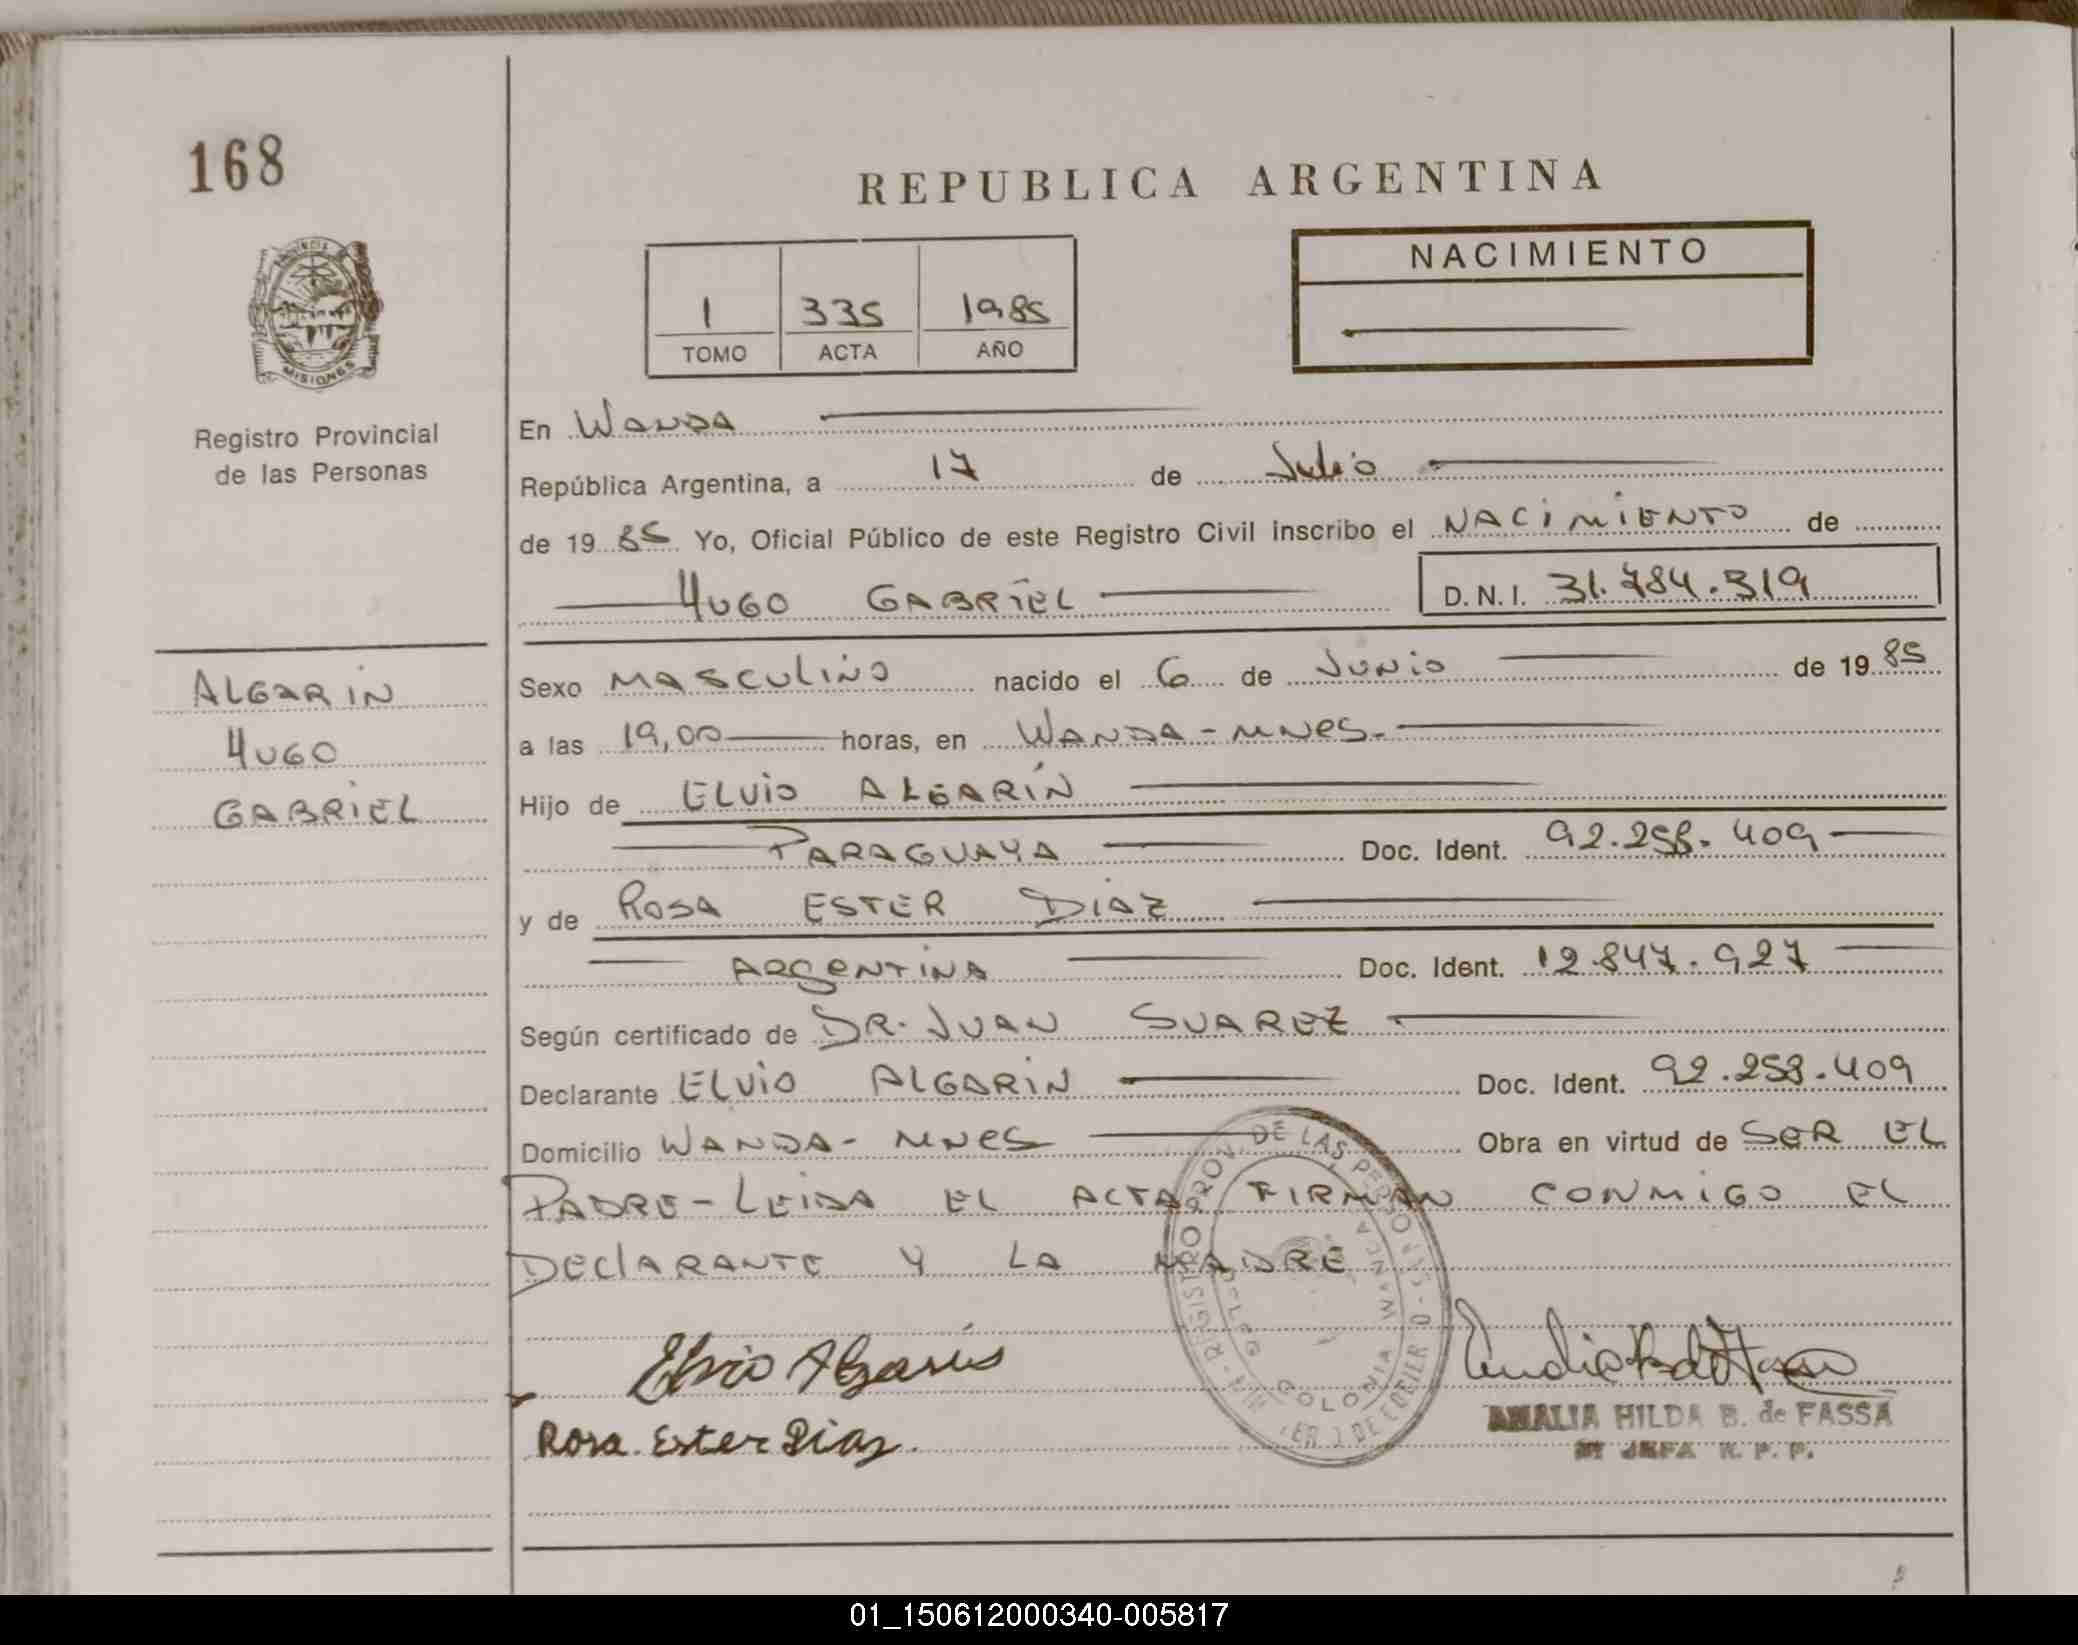 168
REPUBLICA ARGENTINA
NACIMIENTO
1 335 1985
TOMO ACTA AÑO
PROVINCIA DE
MISIONES
Registro Provincial
de las Personas
En WANDA
República Argentina, a 17 de Julio
de 19 85 Yo, Oficial Público de este Registro Civil inscribo el NACIMIENTO de
HUGO GABRIEL D.N.I. 31.784.319
ALGARIN
HUGO
GABRIEL
Sexo MASCULINO nacido el 6 de JUNIO de 19 85
a las 19,00 horas, en WANDA - MNES.
Hijo de ELVIO ALGARÍN
PARAGUAYA Doc. Ident. 92.258.409
y de ROSA ESTER DIAZ
ARGENTINA Doc. Ident. 12.847.927
Según certificado de DR. JUAN SUAREZ
Declarante ELVIO ALGARIN Doc. Ident. 92.258.409
Domicilio WANDA - MNES Obra en virtud de SER EL
PADRE - LEIDA EL ACTA FIRMAN CONMIGO EL
DECLARANTE Y LA MADRE
REGISTRO PROV. DE LAS PERSONAS
COLONIA WANDA
Elvio Algarín
Rosa Ester Diaz.
AMALIA HILDA B. de FASSA
JEFA R. P. P.
01_150612000340-005817